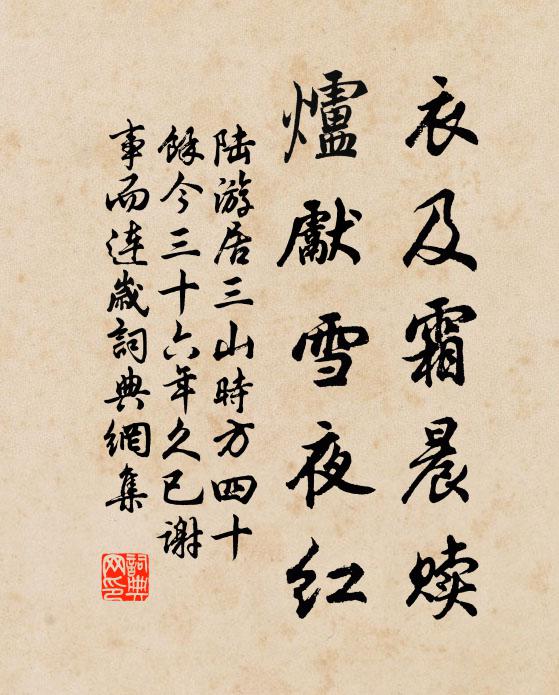 衣及霜晨赎
爐獻雪夜红
陆游居三山時方四十
餘今三十六年久已谢
事而连歲詞典網集
詞典网印